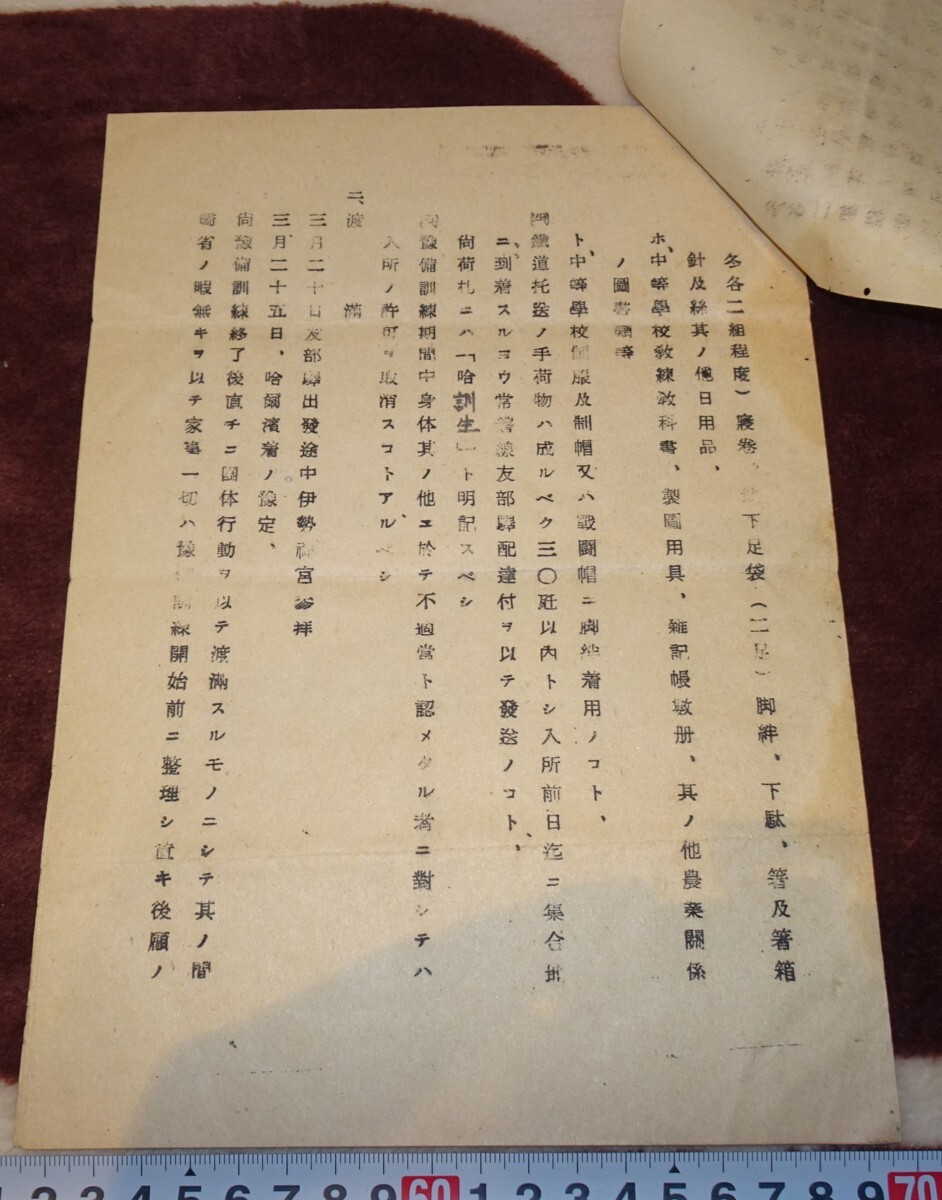 冬各二組程度）寢卷、地下足袋（二足）脚絆、下駄、箸及箸箱
針及絲其ノ他日用品、
ホ、中等學校敎練敎科書、製圖用具、雜記帳數册、其ノ他農業關係
ノ圖書類等
ト、中等學校制服及制帽又ハ戰鬪帽ニ脚絆着用ノコト、
鐵道托送ノ手荷物ハ成ルベク三〇瓩以內トシ入所前日迄ニ集合地
ニ到着スルヨウ常磐線友部驛配達付ヲ以テ發送ノコト、
尙荷札ニハ「哈訓生」ト明記スベシ
豫備訓練期間中身体其ノ他ニ於テ不適當ト認メタル者ニ對シテハ
入所ノ許可ヲ取消スコトアルベシ
二、渡滿
三月二十日友部驛出發途中伊勢神宮參拜
三月二十五日、哈爾濱着ノ豫定、
尙豫備訓練終了後直チニ團体行動ヲ以テ渡滿スルモノニシテ其ノ間
歸省ノ暇無キヲ以テ家事一切ハ豫備訓練開始前ニ整理シ置キ後顧ノ
1 2 3 4 5 6 7 8 9 60 1 2 3 4 5 6 7 8 9 70